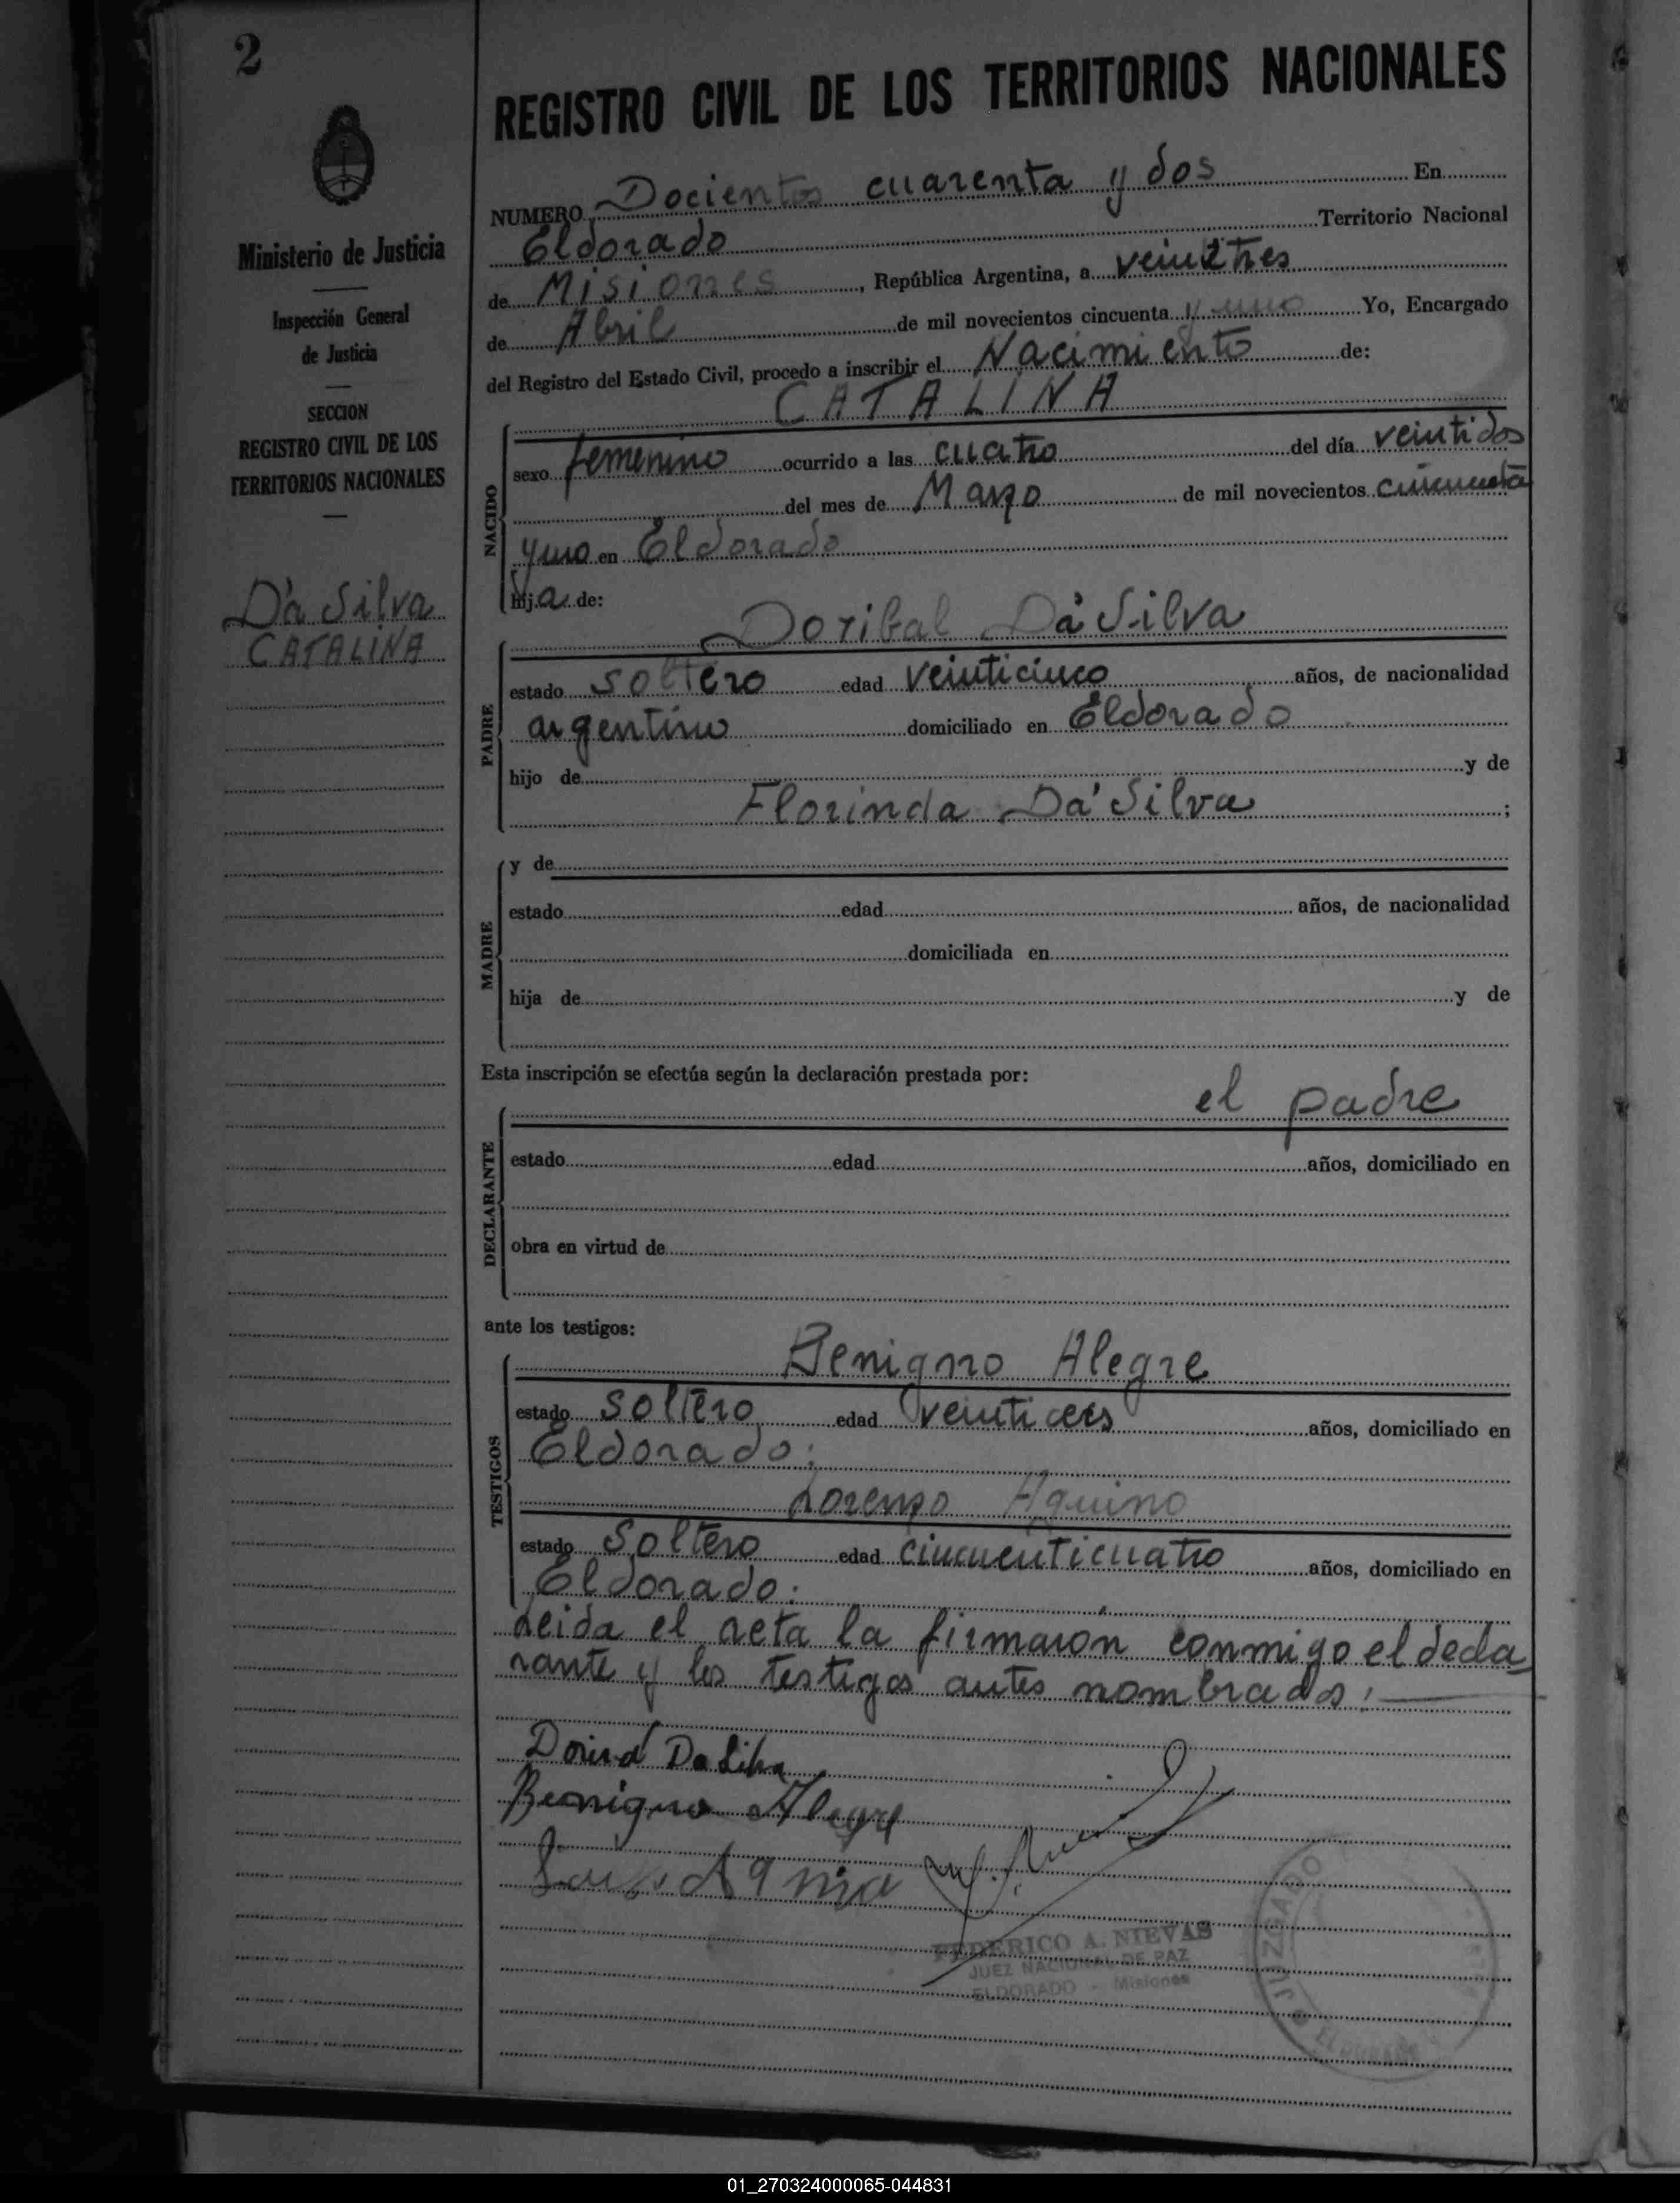 2
REGISTRO CIVIL DE LOS TERRITORIOS NACIONALES
Ministerio de Justicia
Inspección General
de Justicia
SECCION
REGISTRO CIVIL DE LOS
TERRITORIOS NACIONALES
Dá Silva
CATALINA
NUMERO Docientos cuarenta y dos En
Eldorado Territorio Nacional
de Misiones, República Argentina, a veintitres
de Abril de mil novecientos cincuenta y uno Yo, Encargado
del Registro del Estado Civil, procedo a inscribir el Nacimiento de:
CATALINA
NACIDO
sexo femenino ocurrido a las cuatro del día veintidos
del mes de Marzo de mil novecientos cincuenta
y uno en Eldorado
hija de:
PADRE
Doribal Dá Silva
estado soltero edad veinticinco años, de nacionalidad
argentino domiciliado en Eldorado
hijo de y de
Florinda Dá Silva ;
MADRE
y de
estado edad años, de nacionalidad
domiciliada en
hija de y de
Esta inscripción se efectúa según la declaración prestada por:
DECLARANTE
el padre
estado edad años, domiciliado en
obra en virtud de
ante los testigos:
TESTIGOS
Benigno Alegre
estado soltero edad años, domiciliado en
Eldorado;
Lorenzo Aquino
estado Soltero edad cincuenticuatro años, domiciliado en
Eldorado.
Leida el acta la firmaron conmigo el decla
rante y los testigos antes nombrados.
Da Silva
Benigno Alegre
FEDERICO A. NIEVAS
JUEZ NACIONAL DE PAZ
ELDORADO - Misiones
JUZGADO
ELDORADO
01_270324000065-044831